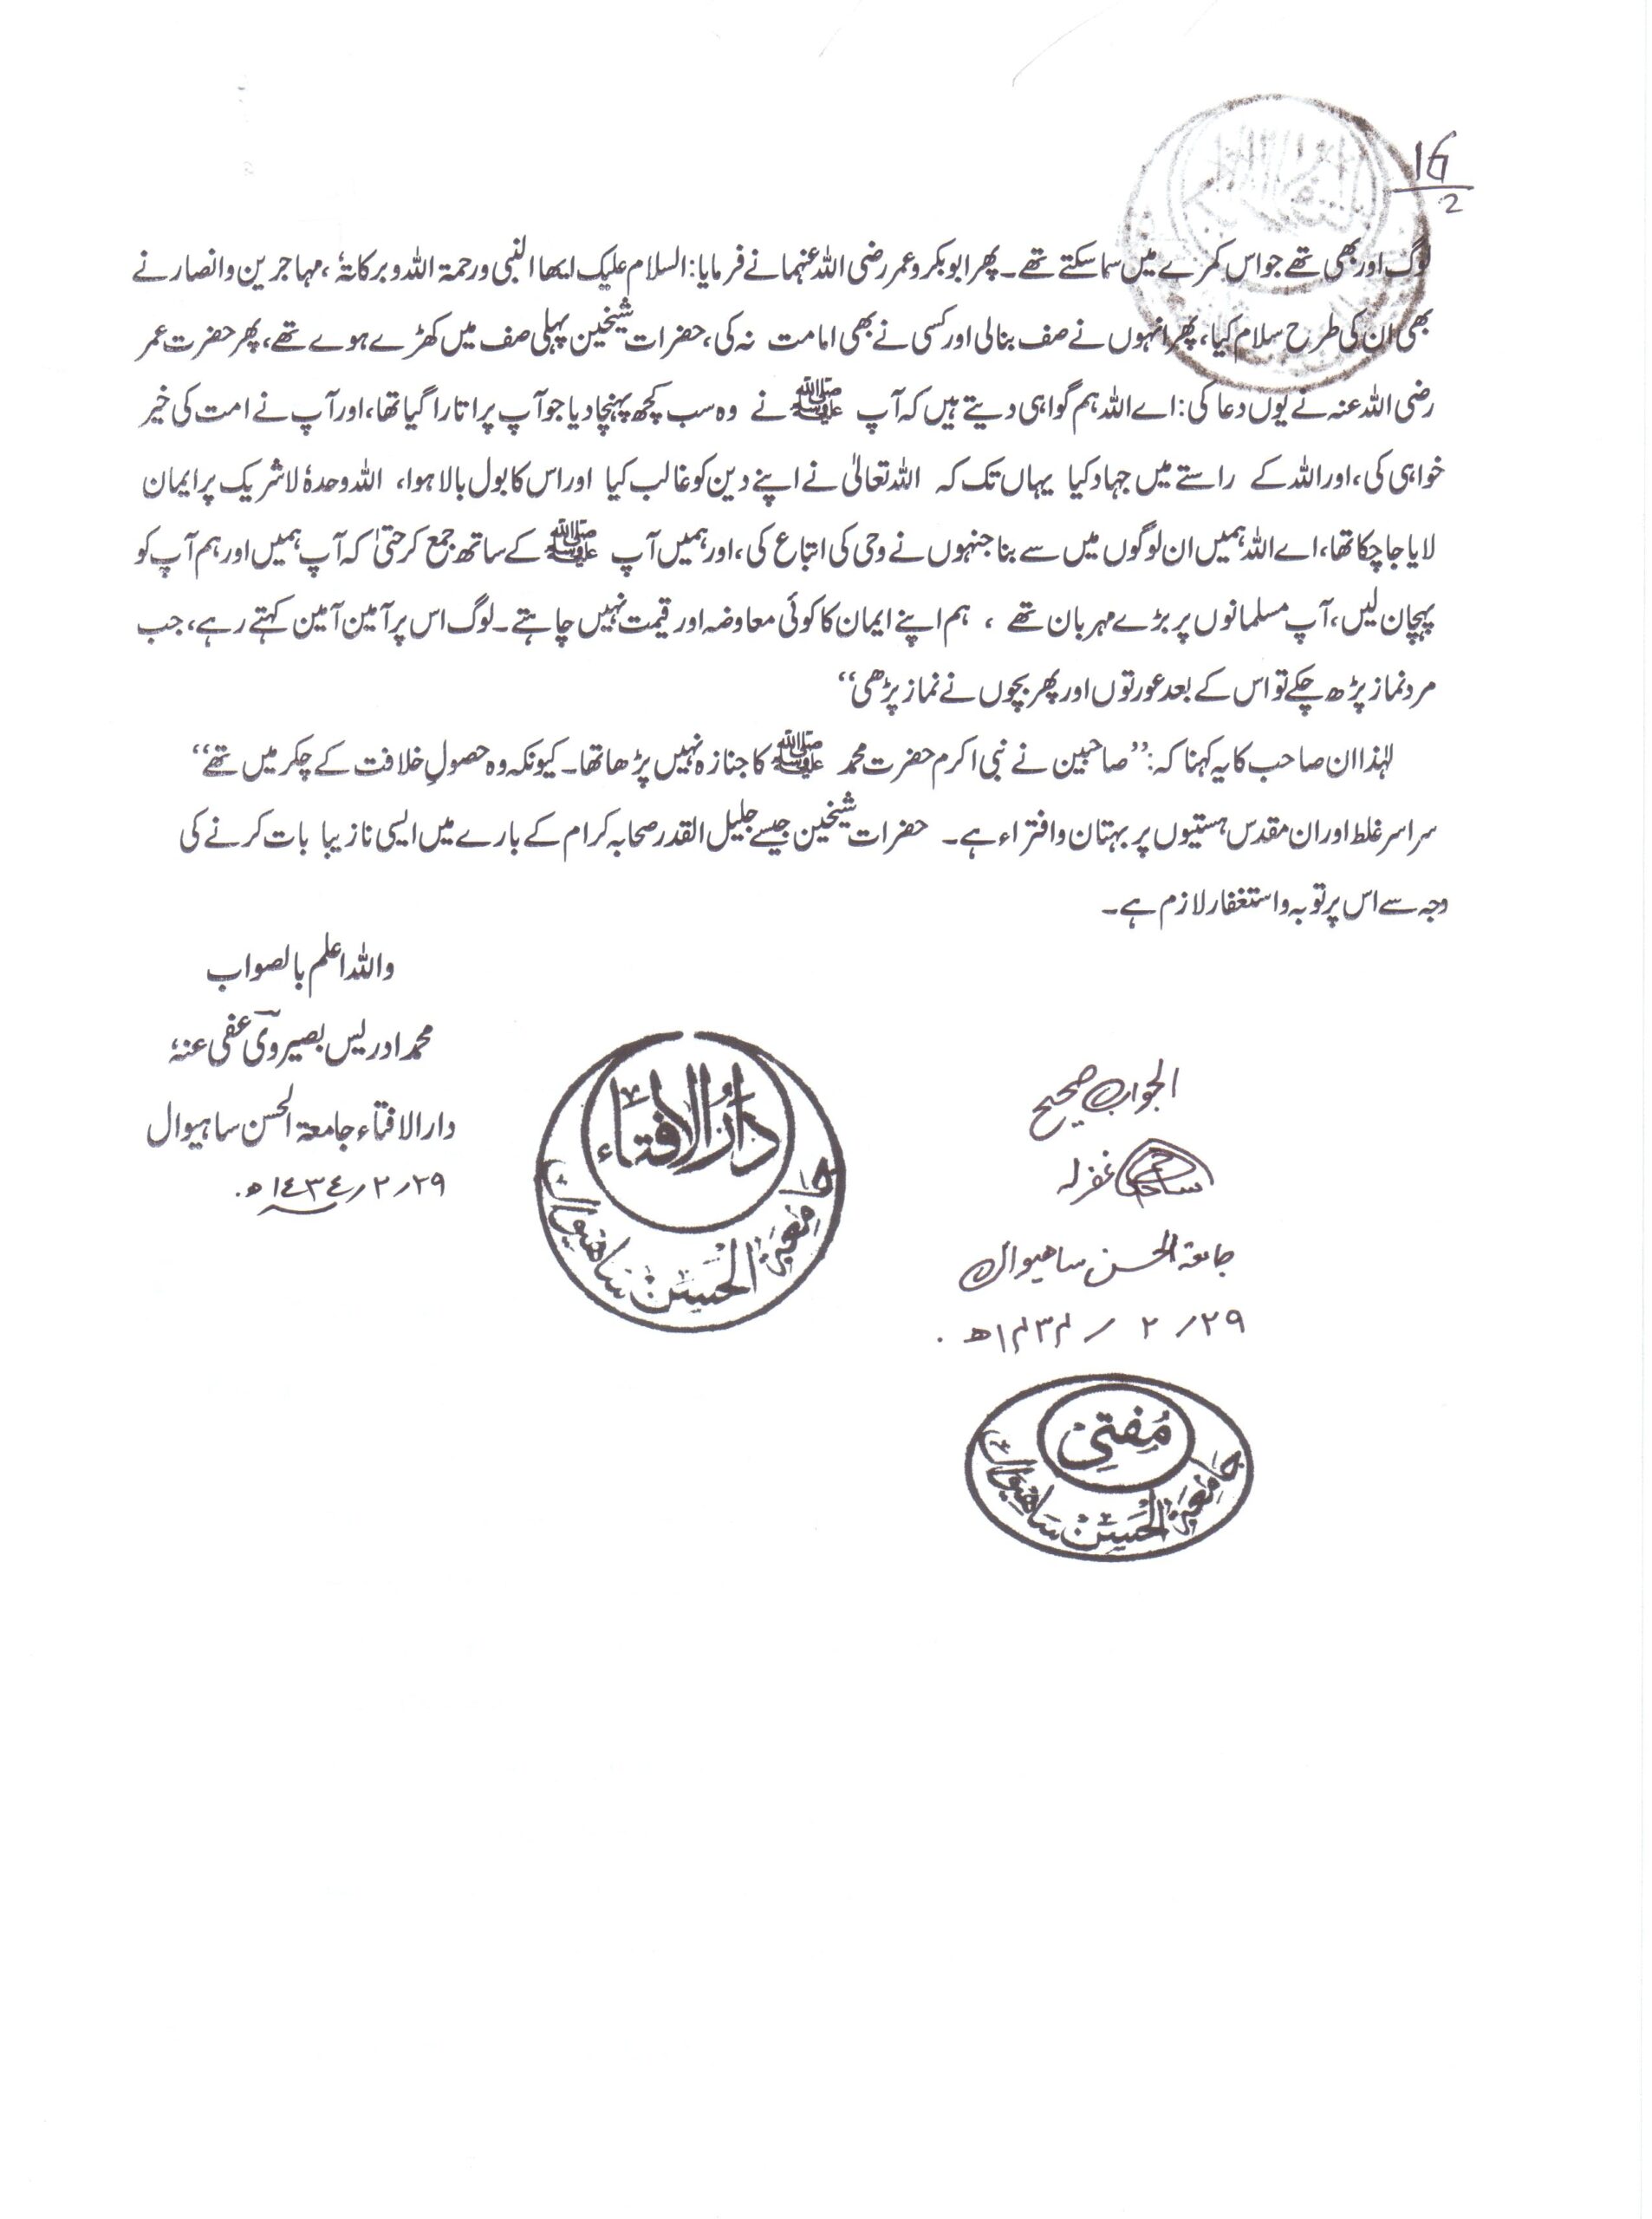 16
2
لوگ اور بھی تھے جو اس کمرے میں سما سکتے تھے۔ پھر ابو بکر و عمر رضی اللہ عنہما نے فرمایا: السلام علیک ایھا النبی ورحمۃ اللہ و برکاتہٗ، مہاجرین و انصار نے
بھی ان کی طرح سلام کیا، پھر انہوں نے صف بنا لی اور کسی نے بھی امامت نہ کی، حضرات شیخین پہلی صف میں کھڑے ہوے تھے، پھر حضرت عمر
رضی اللہ عنہ نے یوں دعا کی: اے اللہ ہم گواہی دیتے ہیں کہ آپ ﷺ نے وہ سب کچھ پہنچا دیا جو آپ پر اتارا گیا تھا، اور آپ نے امت کی خیر
خواہی کی، اور اللہ کے راستے میں جہاد کیا یہاں تک کہ اللہ تعالیٰ نے اپنے دین کو غالب کیا اور اس کا بول بالا ہوا، اللہ وحدہٗ لا شریک پر ایمان
لایا جا چکا تھا، اے اللہ ہمیں ان لوگوں میں سے بنا جنہوں نے وحی کی اتباع کی، اور ہمیں آپ ﷺ کے ساتھ جمع کر حتیٰ کہ آپ ہمیں اور ہم آپ کو
پہچان لیں، آپ مسلمانوں پر بڑے مہربان تھے ، ہم اپنے ایمان کا کوئی معاوضہ اور قیمت نہیں چاہتے۔ لوگ اس پر آمین آمین کہتے رہے، جب
مرد نماز پڑھ چکے تو اس کے بعد عورتوں اور پھر بچوں نے نماز پڑھی‘‘
لہٰذا ان صاحب کا یہ کہنا کہ: ’’صاحبین نے نبی اکرم حضرت محمد ﷺ کا جنازہ نہیں پڑھا تھا۔ کیونکہ وہ حصولِ خلافت کے چکر میں تھے‘‘
سراسر غلط اور ان مقدس ہستیوں پر بہتان و افتراء ہے۔ حضرات شیخین جیسے جلیل القدر صحابہ کرام کے بارے میں ایسی نازیبا بات کرنے کی
وجہ سے اس پر توبہ و استغفار لازم ہے۔
واللہ اعلم بالصواب
محمد ادریس بصیروی عفی عنہ
دارالافتاء جامعۃ الحسن ساہیوال
۲۹/۲/۱٤۳٤ھ
دار الافتاء
جامعۃ الحسن ساہیوال
الجواب صحیح
غفرلہ
جامعۃ الحسن ساھیوال
۲۹/ ۲ /۱۴۳۴ھ
مفتی
جامعۃ الحسن ساہیوال